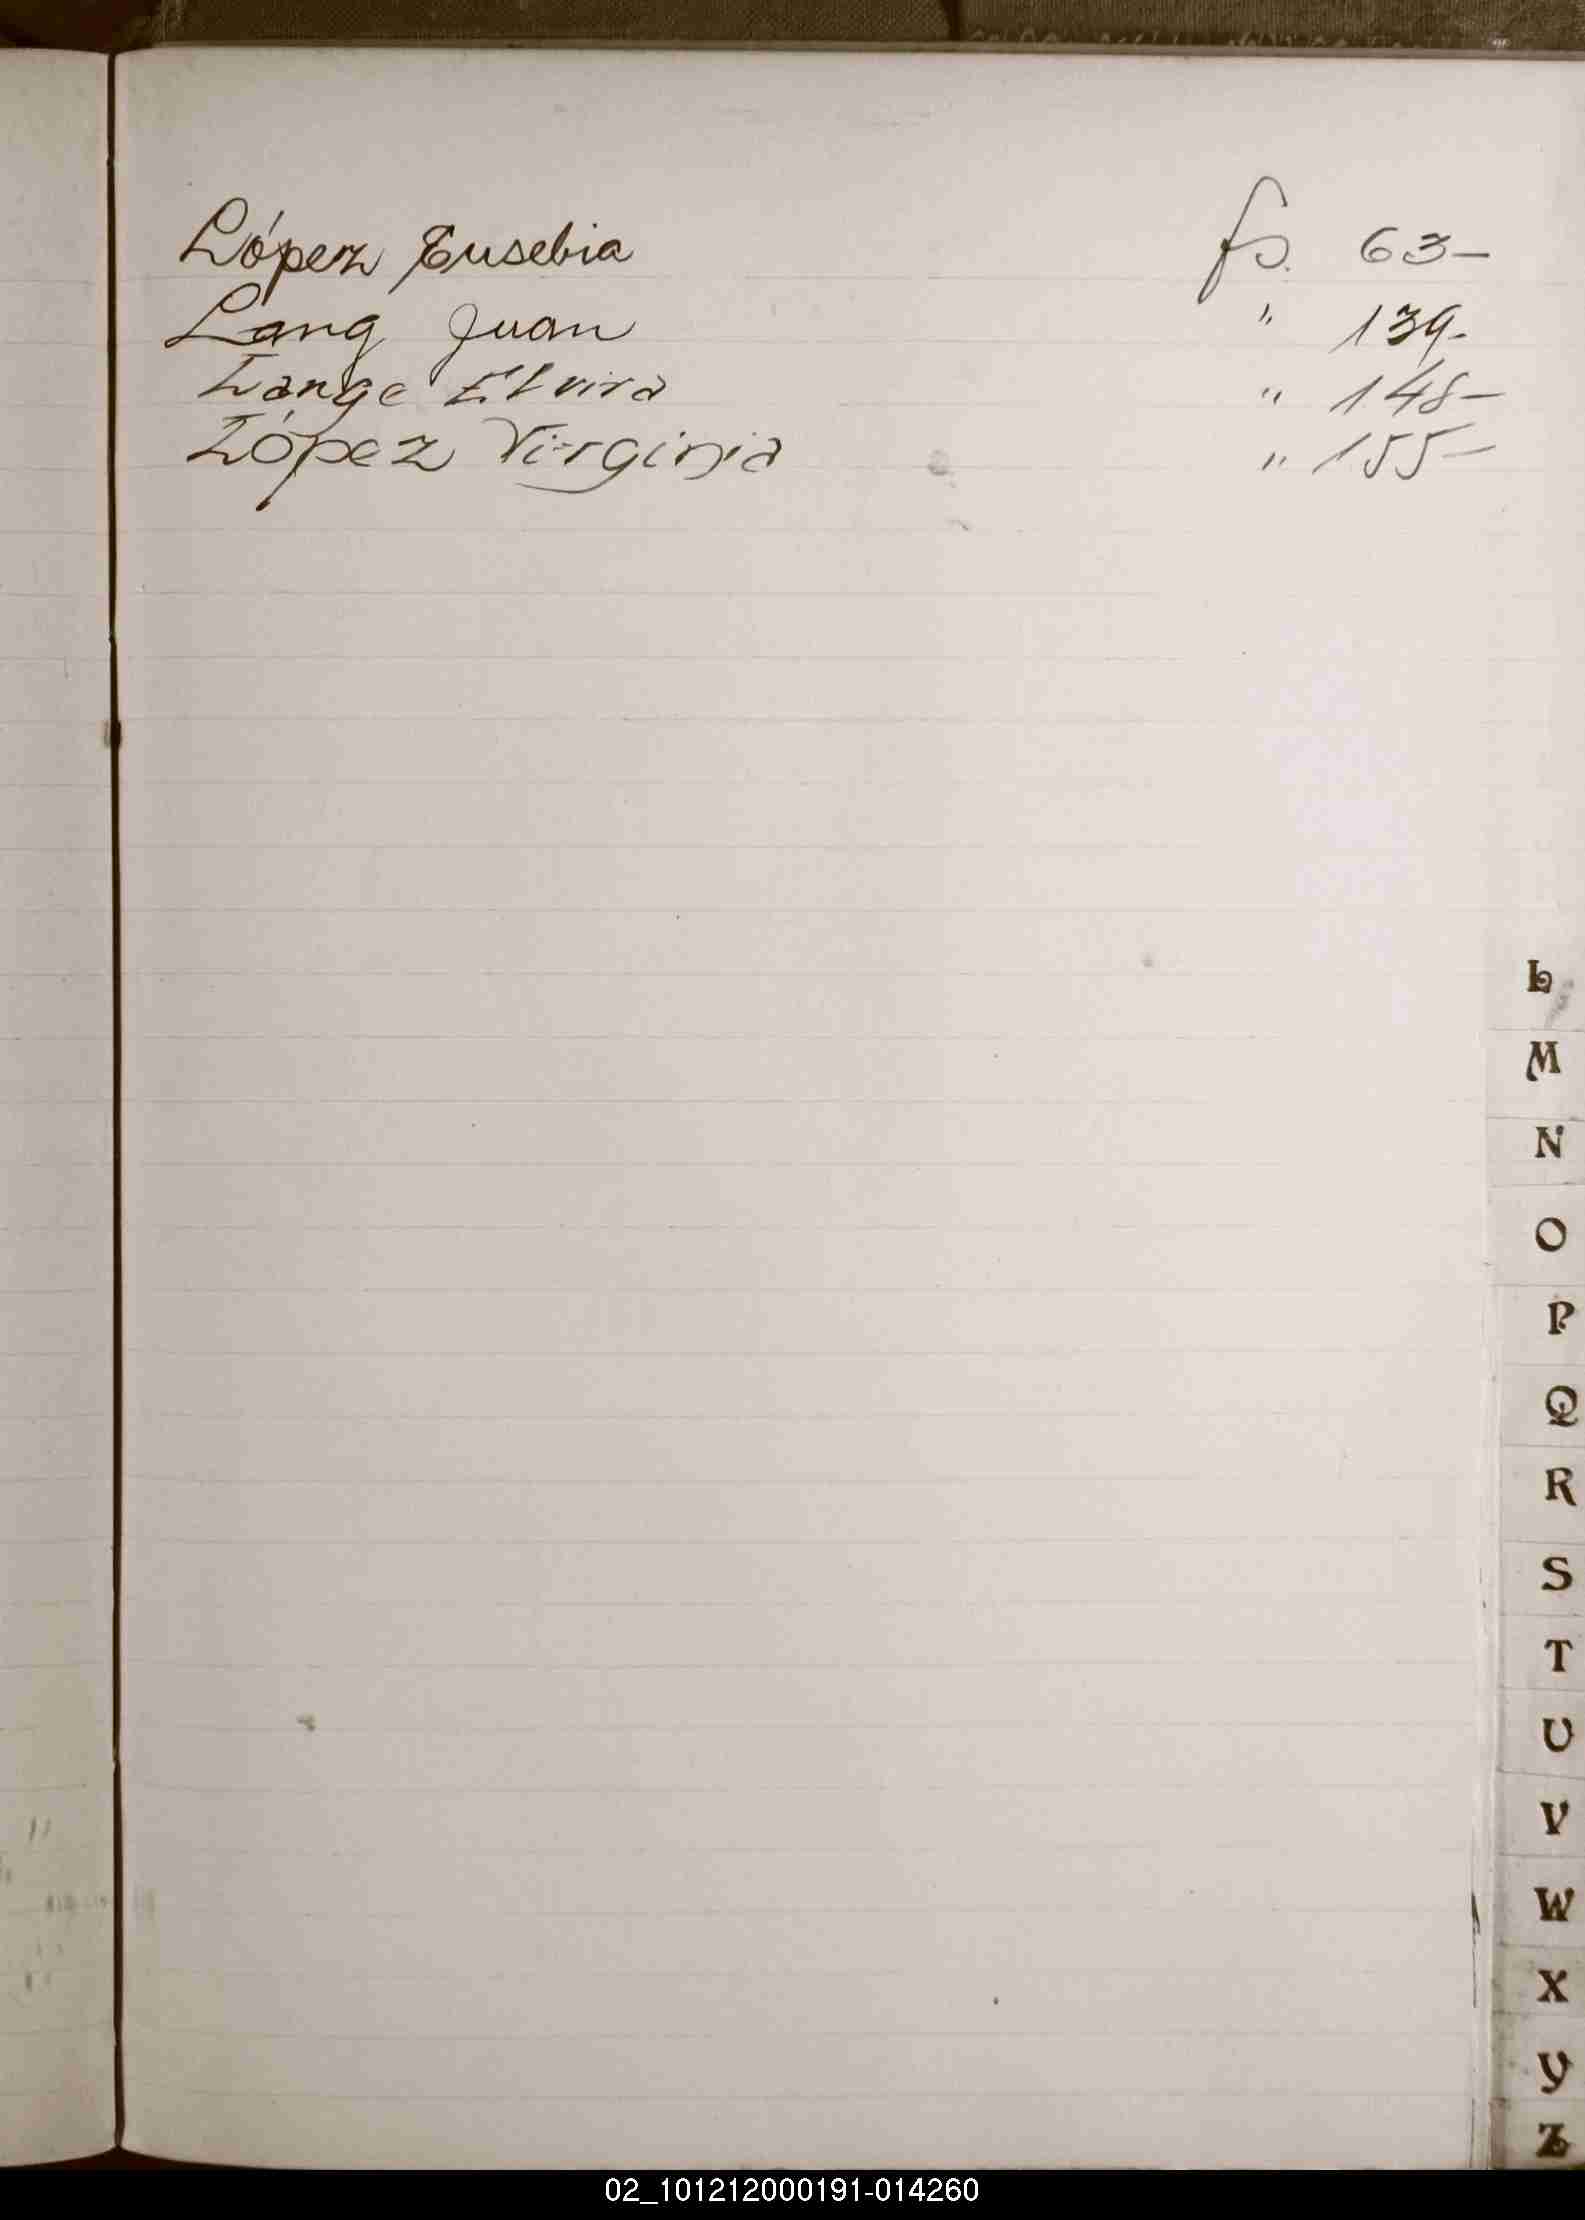 López Eusebia fs. 63-
Lang Juan " 139-
Lange Elvira " 148-
López Virginia " 155-
L
M
N
O
P
Q
R
S
T
U
V
W
X
Y
Z
02_101212000191-014260